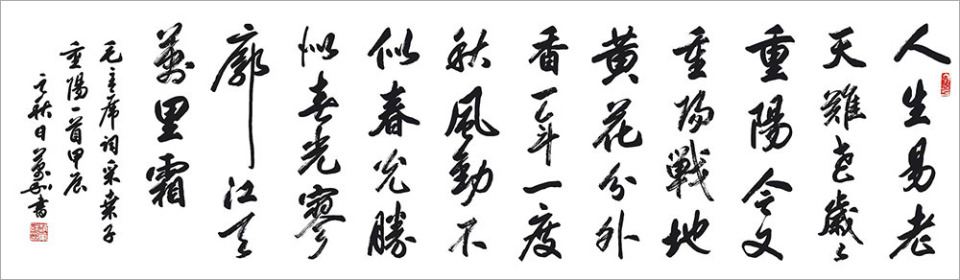 人生易老
天難老歲々
重陽今又
重陽戰地
黃花分外
香一年一度
秋風勁不
似春光勝
似春光寥
廓江天
萬里霜
毛主席詞采桑子
重陽一首甲辰
之秋日萬書